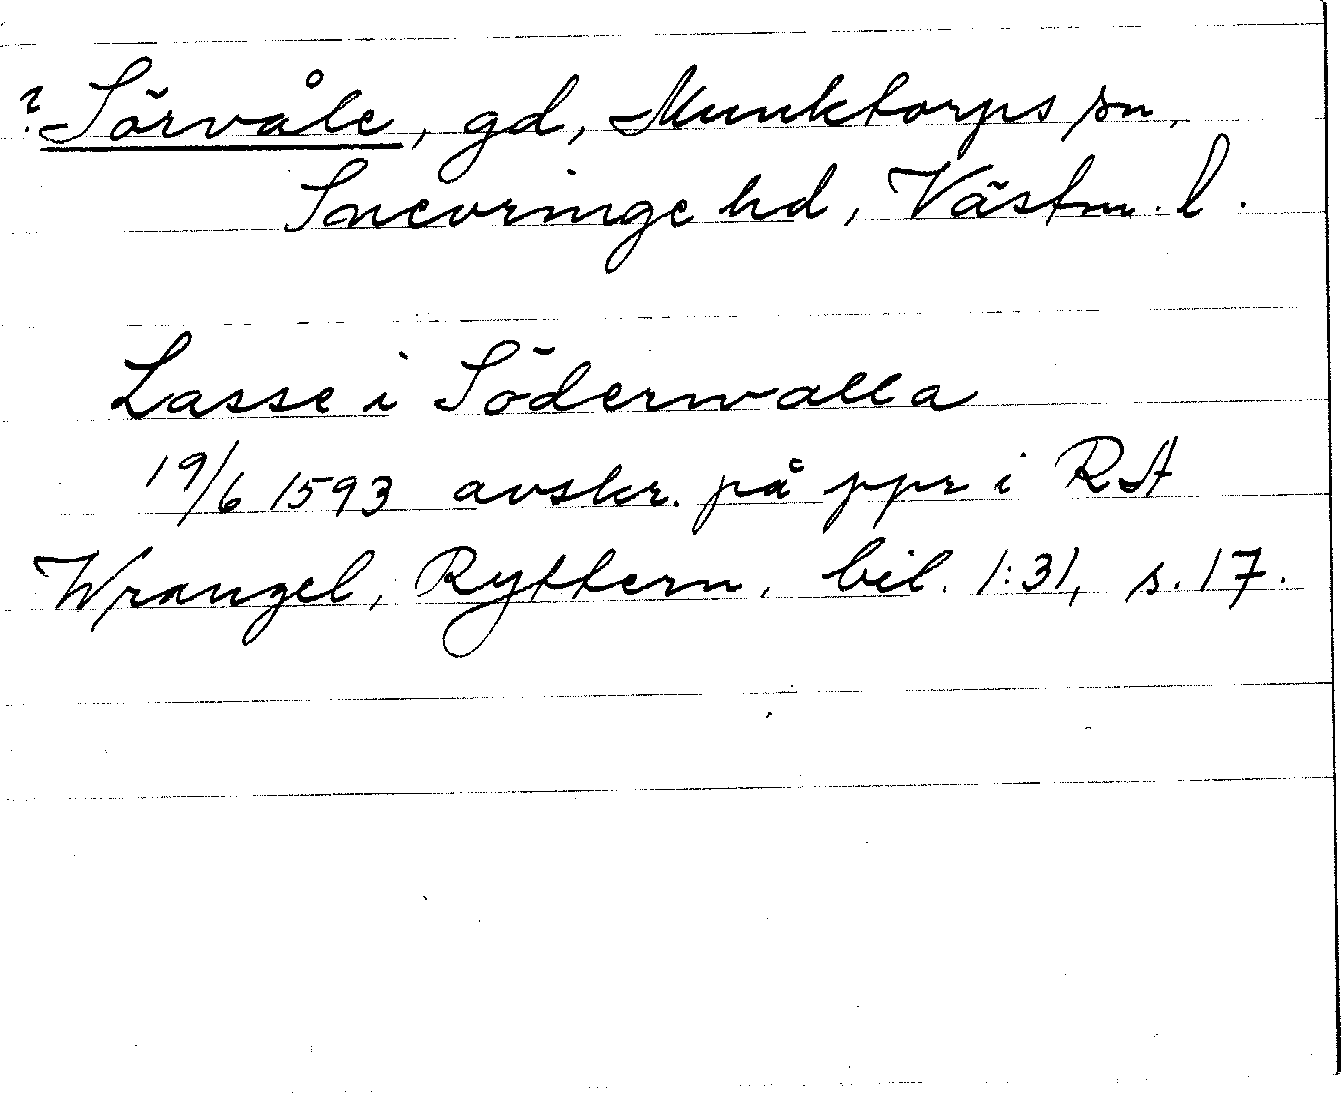 ? Sörvåle, gd, Munktorps sn,
Snevringe hd, Västm. l.
Lasse i Söderwalla
19/6 1593 avskr. på ppr i RA
Wrangel, Ryttern, bil. 1:31, s. 17.